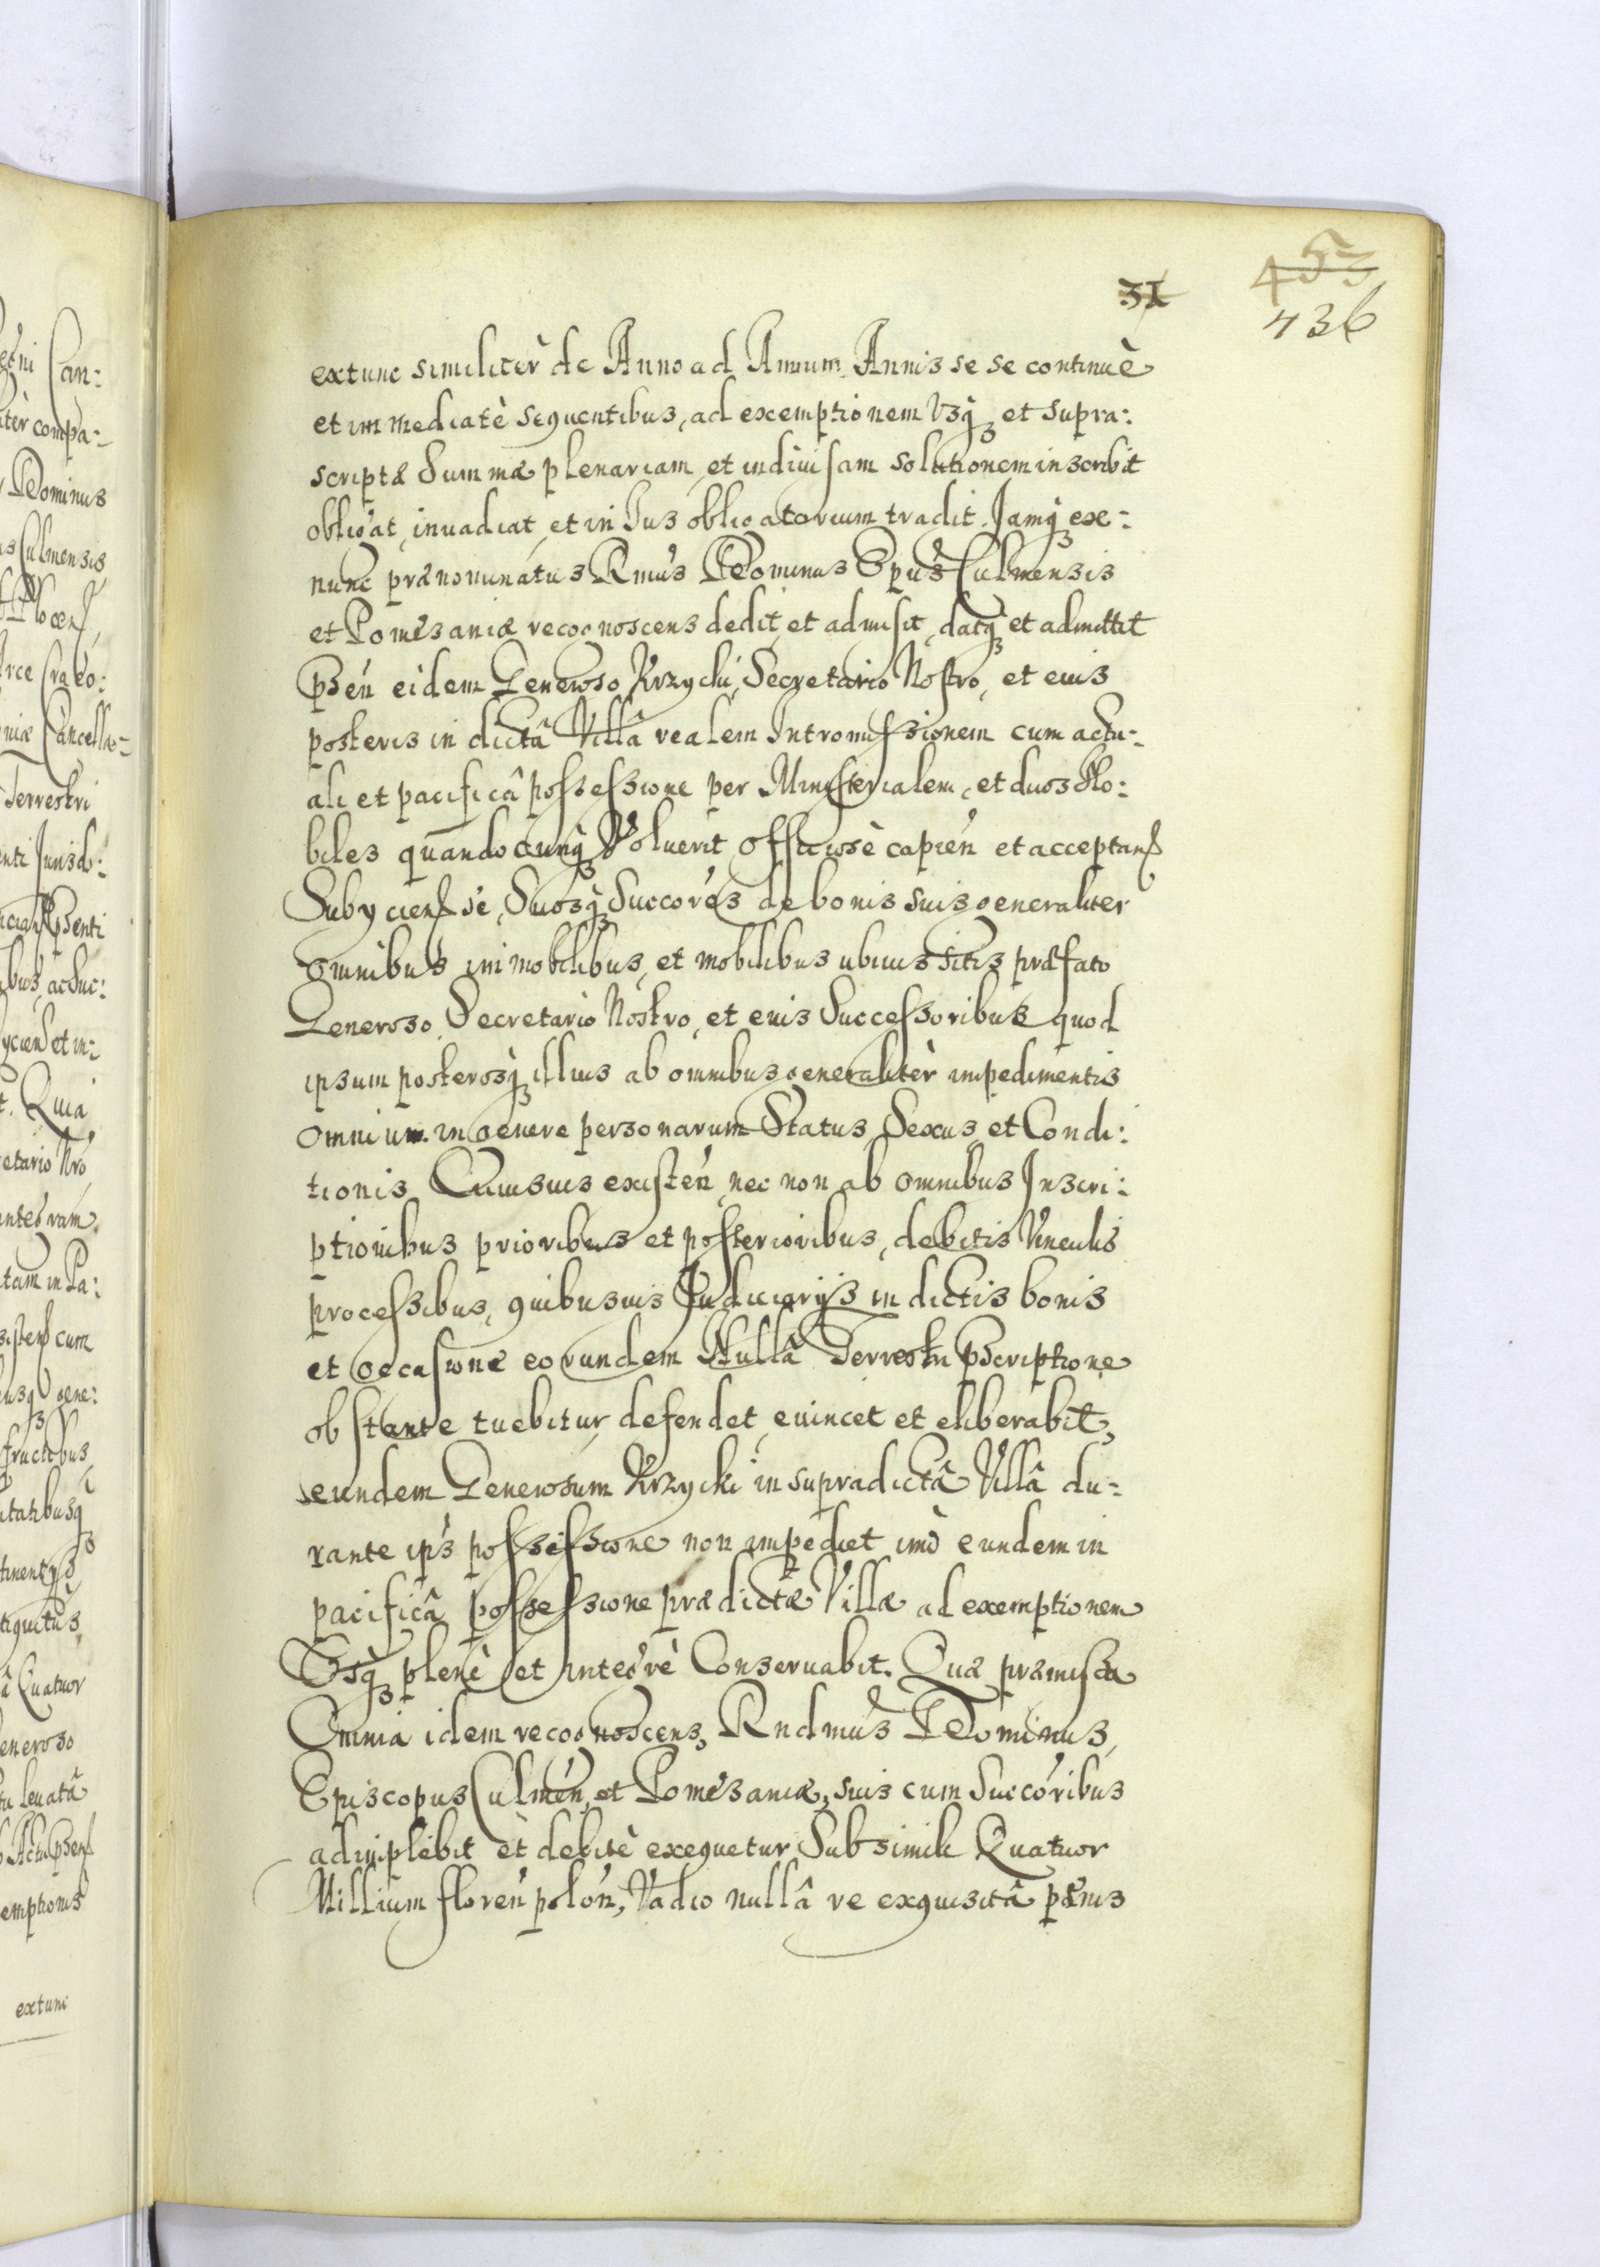 31
453
436
extunc similitèr de Anno ad Annum Annis se se continuè
et immediatè sequentibus, ad exemptionem Vsq₃ et supra:
scriptæ Summæ plenariam, et indiuisam solutionem inscribit
obligat, inuadiat, et in Jus obligatorium tradit. Jamq₃ ex=
nunc prænominatus Rmũs Dominus Epũs Culmensis
et Pomesaniæ recognoscens dedit, et admisit, datq₃ et admittit
pseń eidem Generoso Krzycki, Secretario Nostro, et eius
posteris in dictâ Villâ realem Intromissionem cum actu:
ali et pacificâ possessione per Ministerialem, et duos No:
biles quandocunq₃ Voluerit officiosè capień et acceptanꝭ
Subycienꝭ se, Suosq₃ Succorẽs de bonis suis generaliter
omnibus immobilibus, et mobilibus ubiuis sitis præfato
Generoso Secretario Nostro, et eius Successoribus quod
ipsum posterosq₃ illius ab omnibus generalitèr impedimentis
omnium in genere personarum Status, Sexus, et Condi:
tionis Cuiusuis existeń, nec non ab omnibus Inscri:
ptionibus prioribus et posterioribus, debitis Vinculis
processibus, quibusuis Iudiciarijs in dictis bonis
et occasione eorundem Nullâ Terrestri pscriptione
obstante tuebitur, defendet, euincet et eliberabit,
eundem Generosum Krzycki in supradictâ Villâ du=
rante ipś possessione non impediet imò eundem in
pacificâ possessione prædictæ Villæ ad exemptionem
Vsq₃ plenè et integrè Conseruabit. Quæ præmissa
Omnia idem recognoscens, Rndmũs Dominus,
Episcopus Culmeń, et Pomesaniæ, suis cum Succorĩbus
adimplebit et debitè exequetur Sub simili Quatuor
Millium floreń poloń, Vadio nullâ re exquisitâ pænis